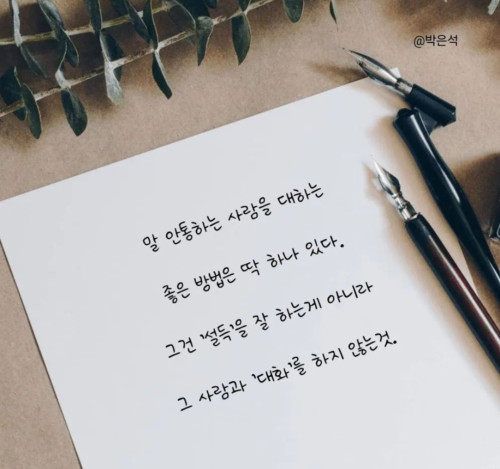 @박은석
말 안통하는 사람을 대하는
좋은 방법은 딱 하나 있다.
그건 '설득'을 잘 하는게 아니라
그 사람과 '대화'를 하지 않는것.